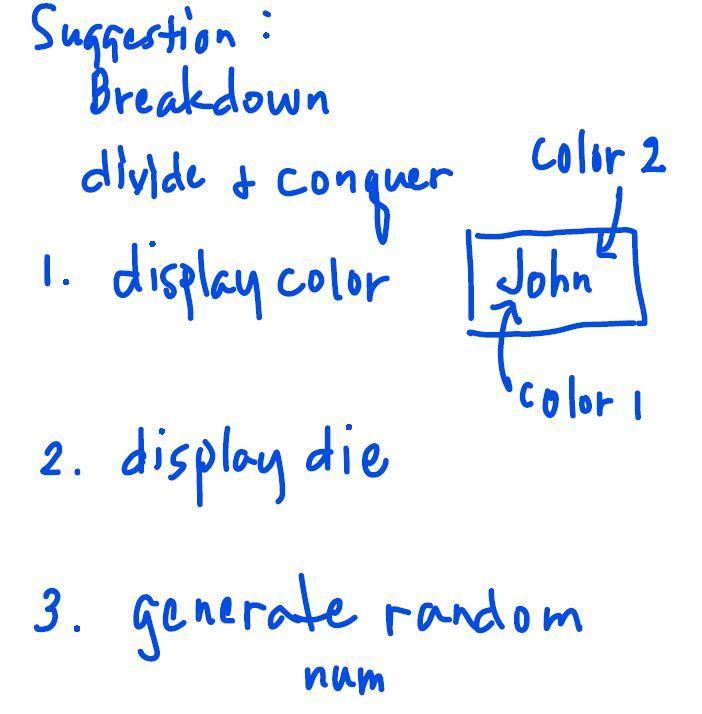 Suggestion :
Breakdown
divide & conquer
color 2
1. display color
John
color 1
2. display die
3. generate random
num